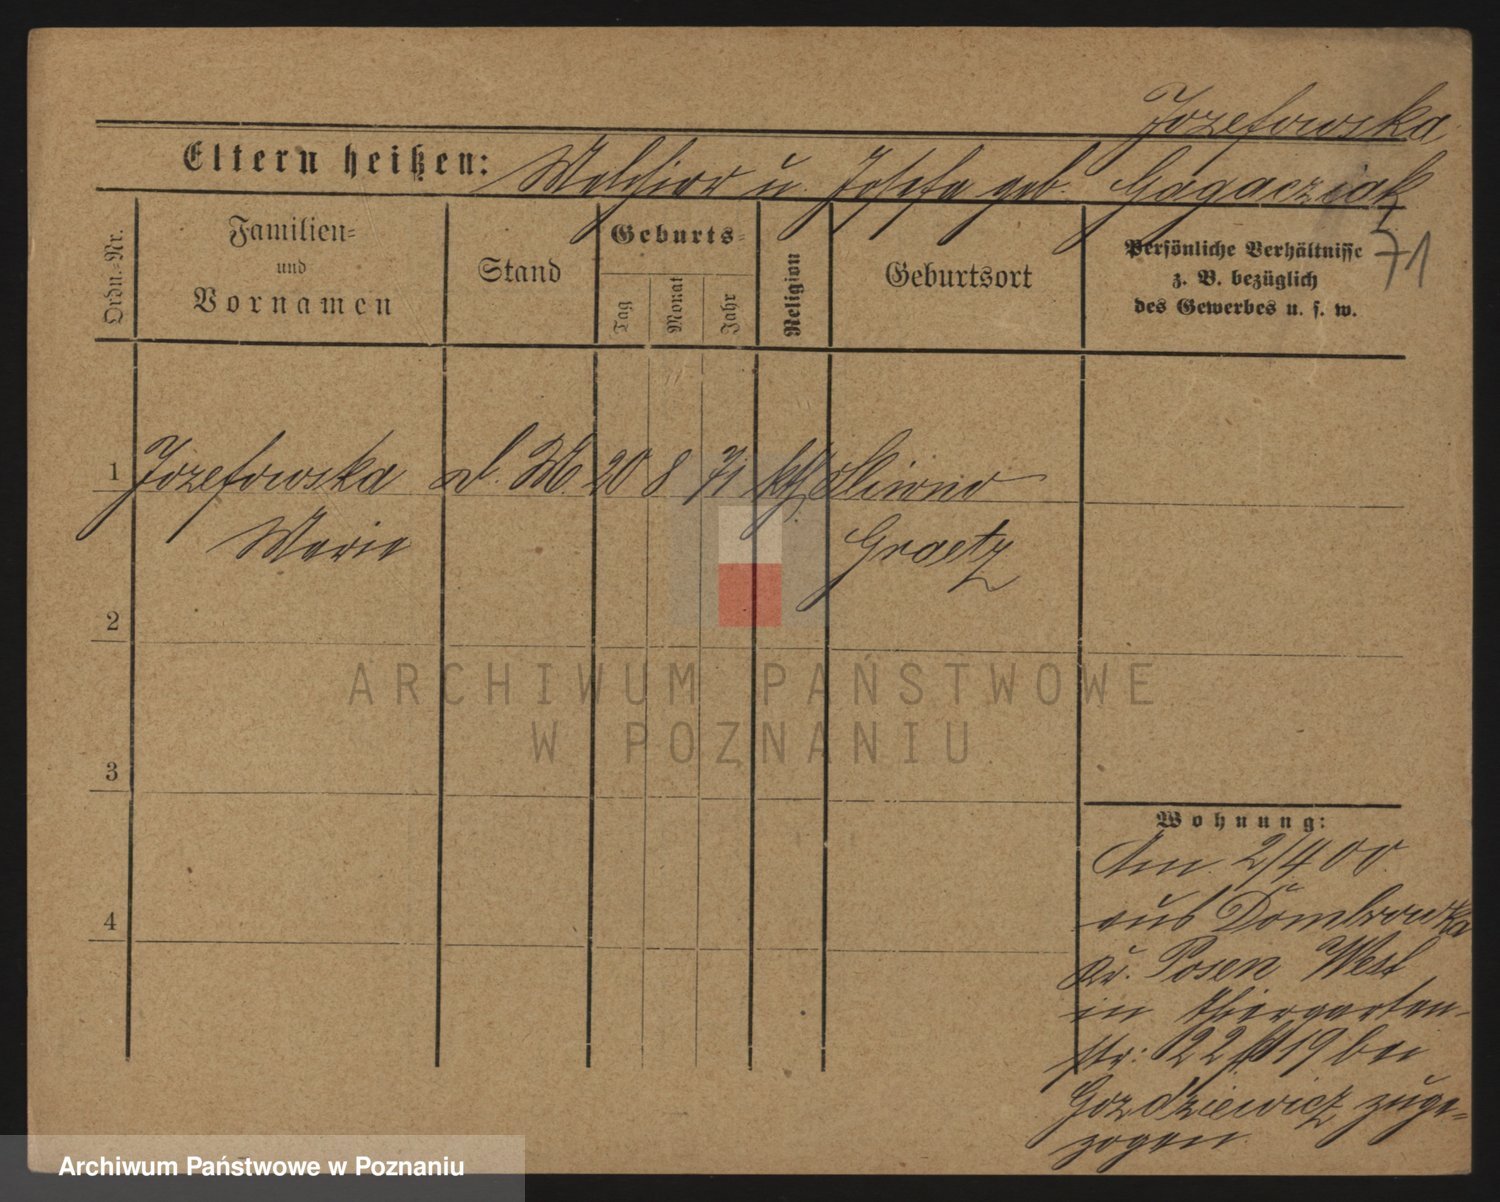 Jozefowska
Eltern heißen: Melchior u. Josefa geb. Gagacziak
71
Ordn.-Nr.
Familien-
und
Vornamen
Stand
Geburts-
Tag
Monat
Jahr
Religion
Geburtsort
Persönliche Verhältnisse
z. B. bezüglich
des Gewerbes u. s. w.
1 Jozefowska d. M. 20 8 71 kth Sliwno
Marie Graetz
2
3
4
Wohnung:
Am 2/4 00
aus Dombrowka
Kr. Posen West
in Thiergarten-
str: 22 19 bei
Gozdziewicz zuge-
zogen
ARCHIWUM PAŃSTWOWE
W POZNANIU
Archiwum Państwowe w Poznaniu